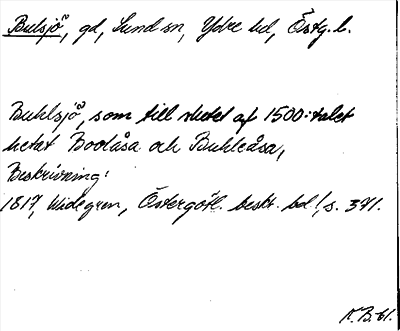 Bulsjö, gd, Sund sn, Ydre hd, Östg. l.
Buhlsjö, som till slutet af 1500-talet
hetat Boolåsa och Buhleåsa,
Beskrivning:
1817, Widegren, Östergötl. beskr. bd 1, s. 371.
K.B-61.